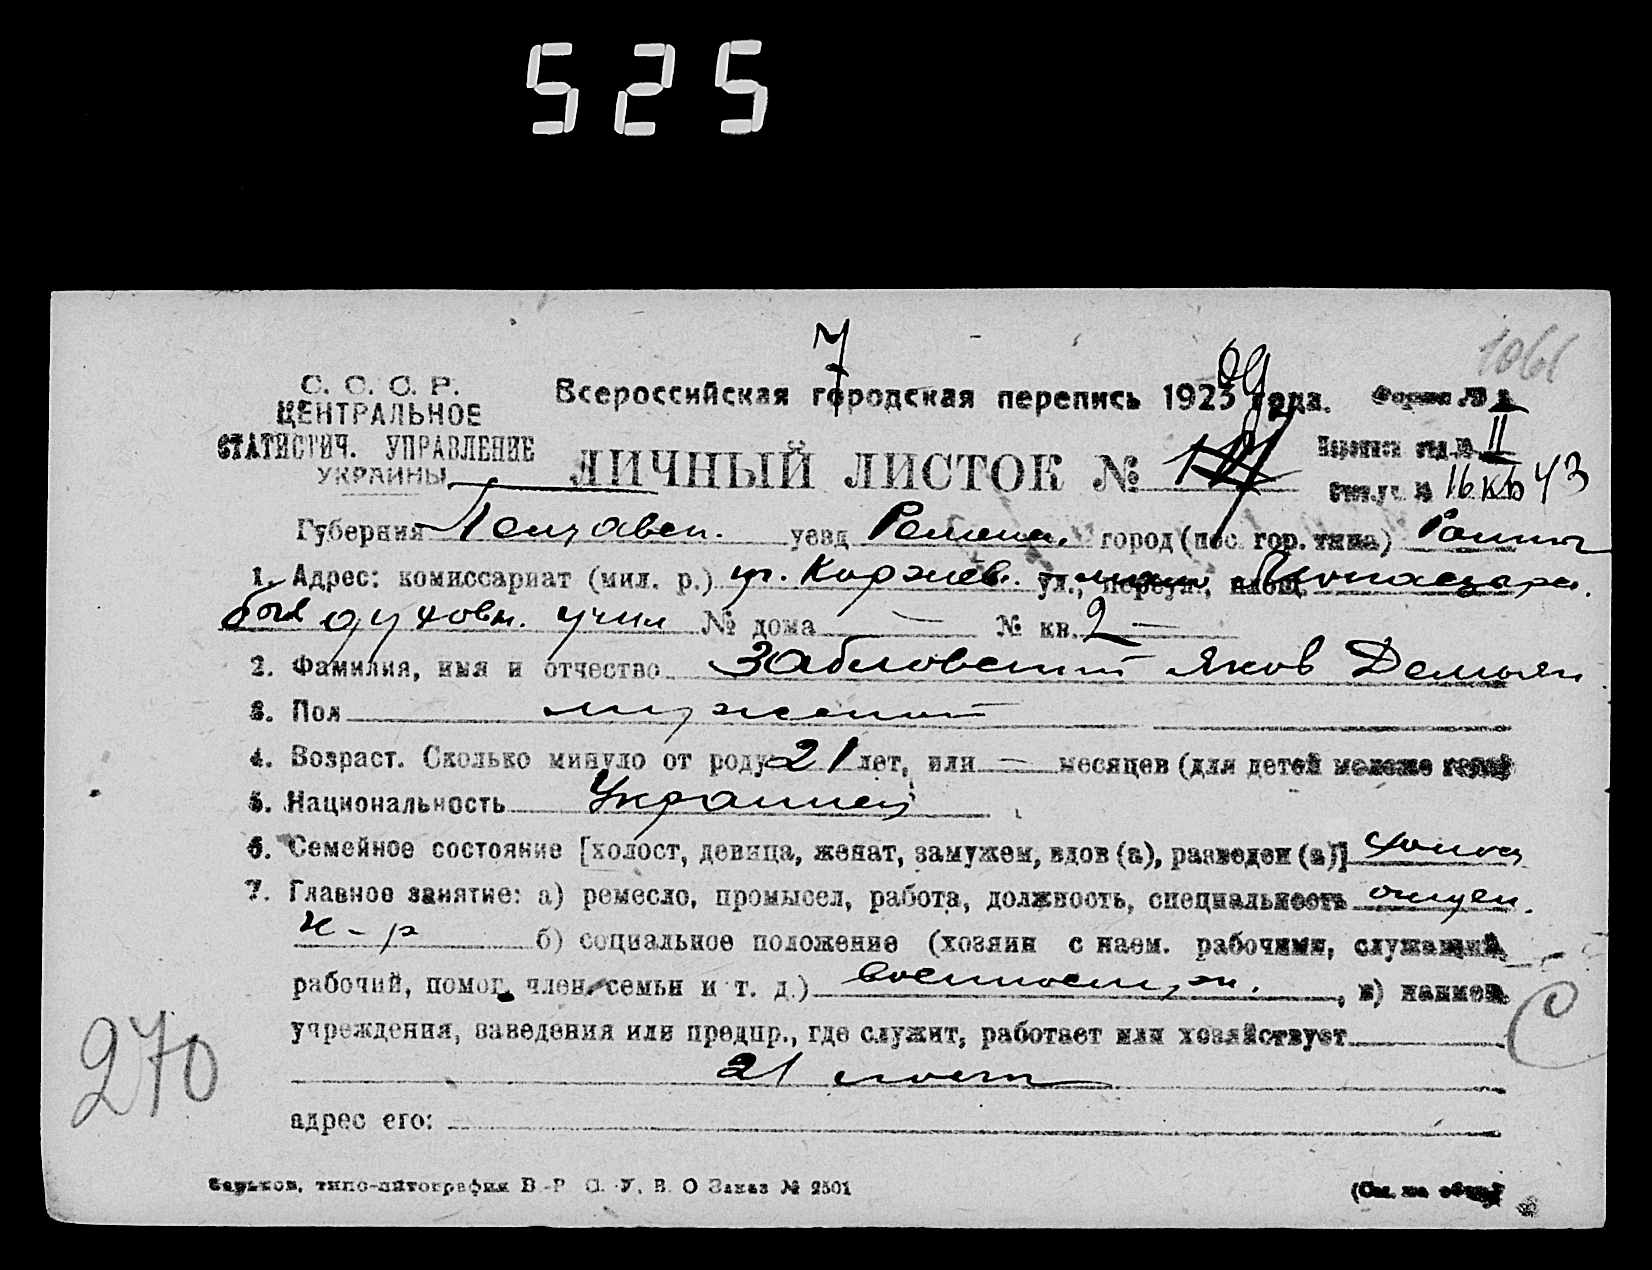 525
7
1066
С. С. С. Р.
Всероссийская городская перепись 1923 года. Форма № 2
ЦЕНТРАЛЬНОЕ
СТАТИСТИЧ. УПРАВЛЕНИЕ
УКРАИНЫ
ЛИЧНЫЙ ЛИСТОК №
Переписн отд. № II
Счетн. уч. № 16 кв 43
Губерния Полтавск. уезд Роменск. город (пос. гор. типа) Ромны
1. Адрес: комиссариат (мил. р.) ул., переул., площ. Монастырск.
быв духовн. учил № дома — № кв. 2 —
2. Фамилия, имя и отчество Забловский Яков Демьян
3. Пол мужской
4. Возраст. Сколько минуло от роду 21 лет, или — месяцев (для детей моложе года)
5. Национальность Украинец
6. Семейное состояние [холост, девица, женат, замужем, вдов (а), разведен (а)] холост
7. Главное занятие: а) ремесло, промысел, работа, должность, специальность
к-р б) социальное положение (хозяин с наем. рабочими, служащий,
рабочий, помог. член семьи и т. д.) военнослуж., в) наимен.
учреждения, заведения или предпр., где служит, работает или хозяйствует
С
270
21
адрес его:
Харьков, типо-литография В.-Р. О. У. В. О Заказ № 2501
(См. на обор.)